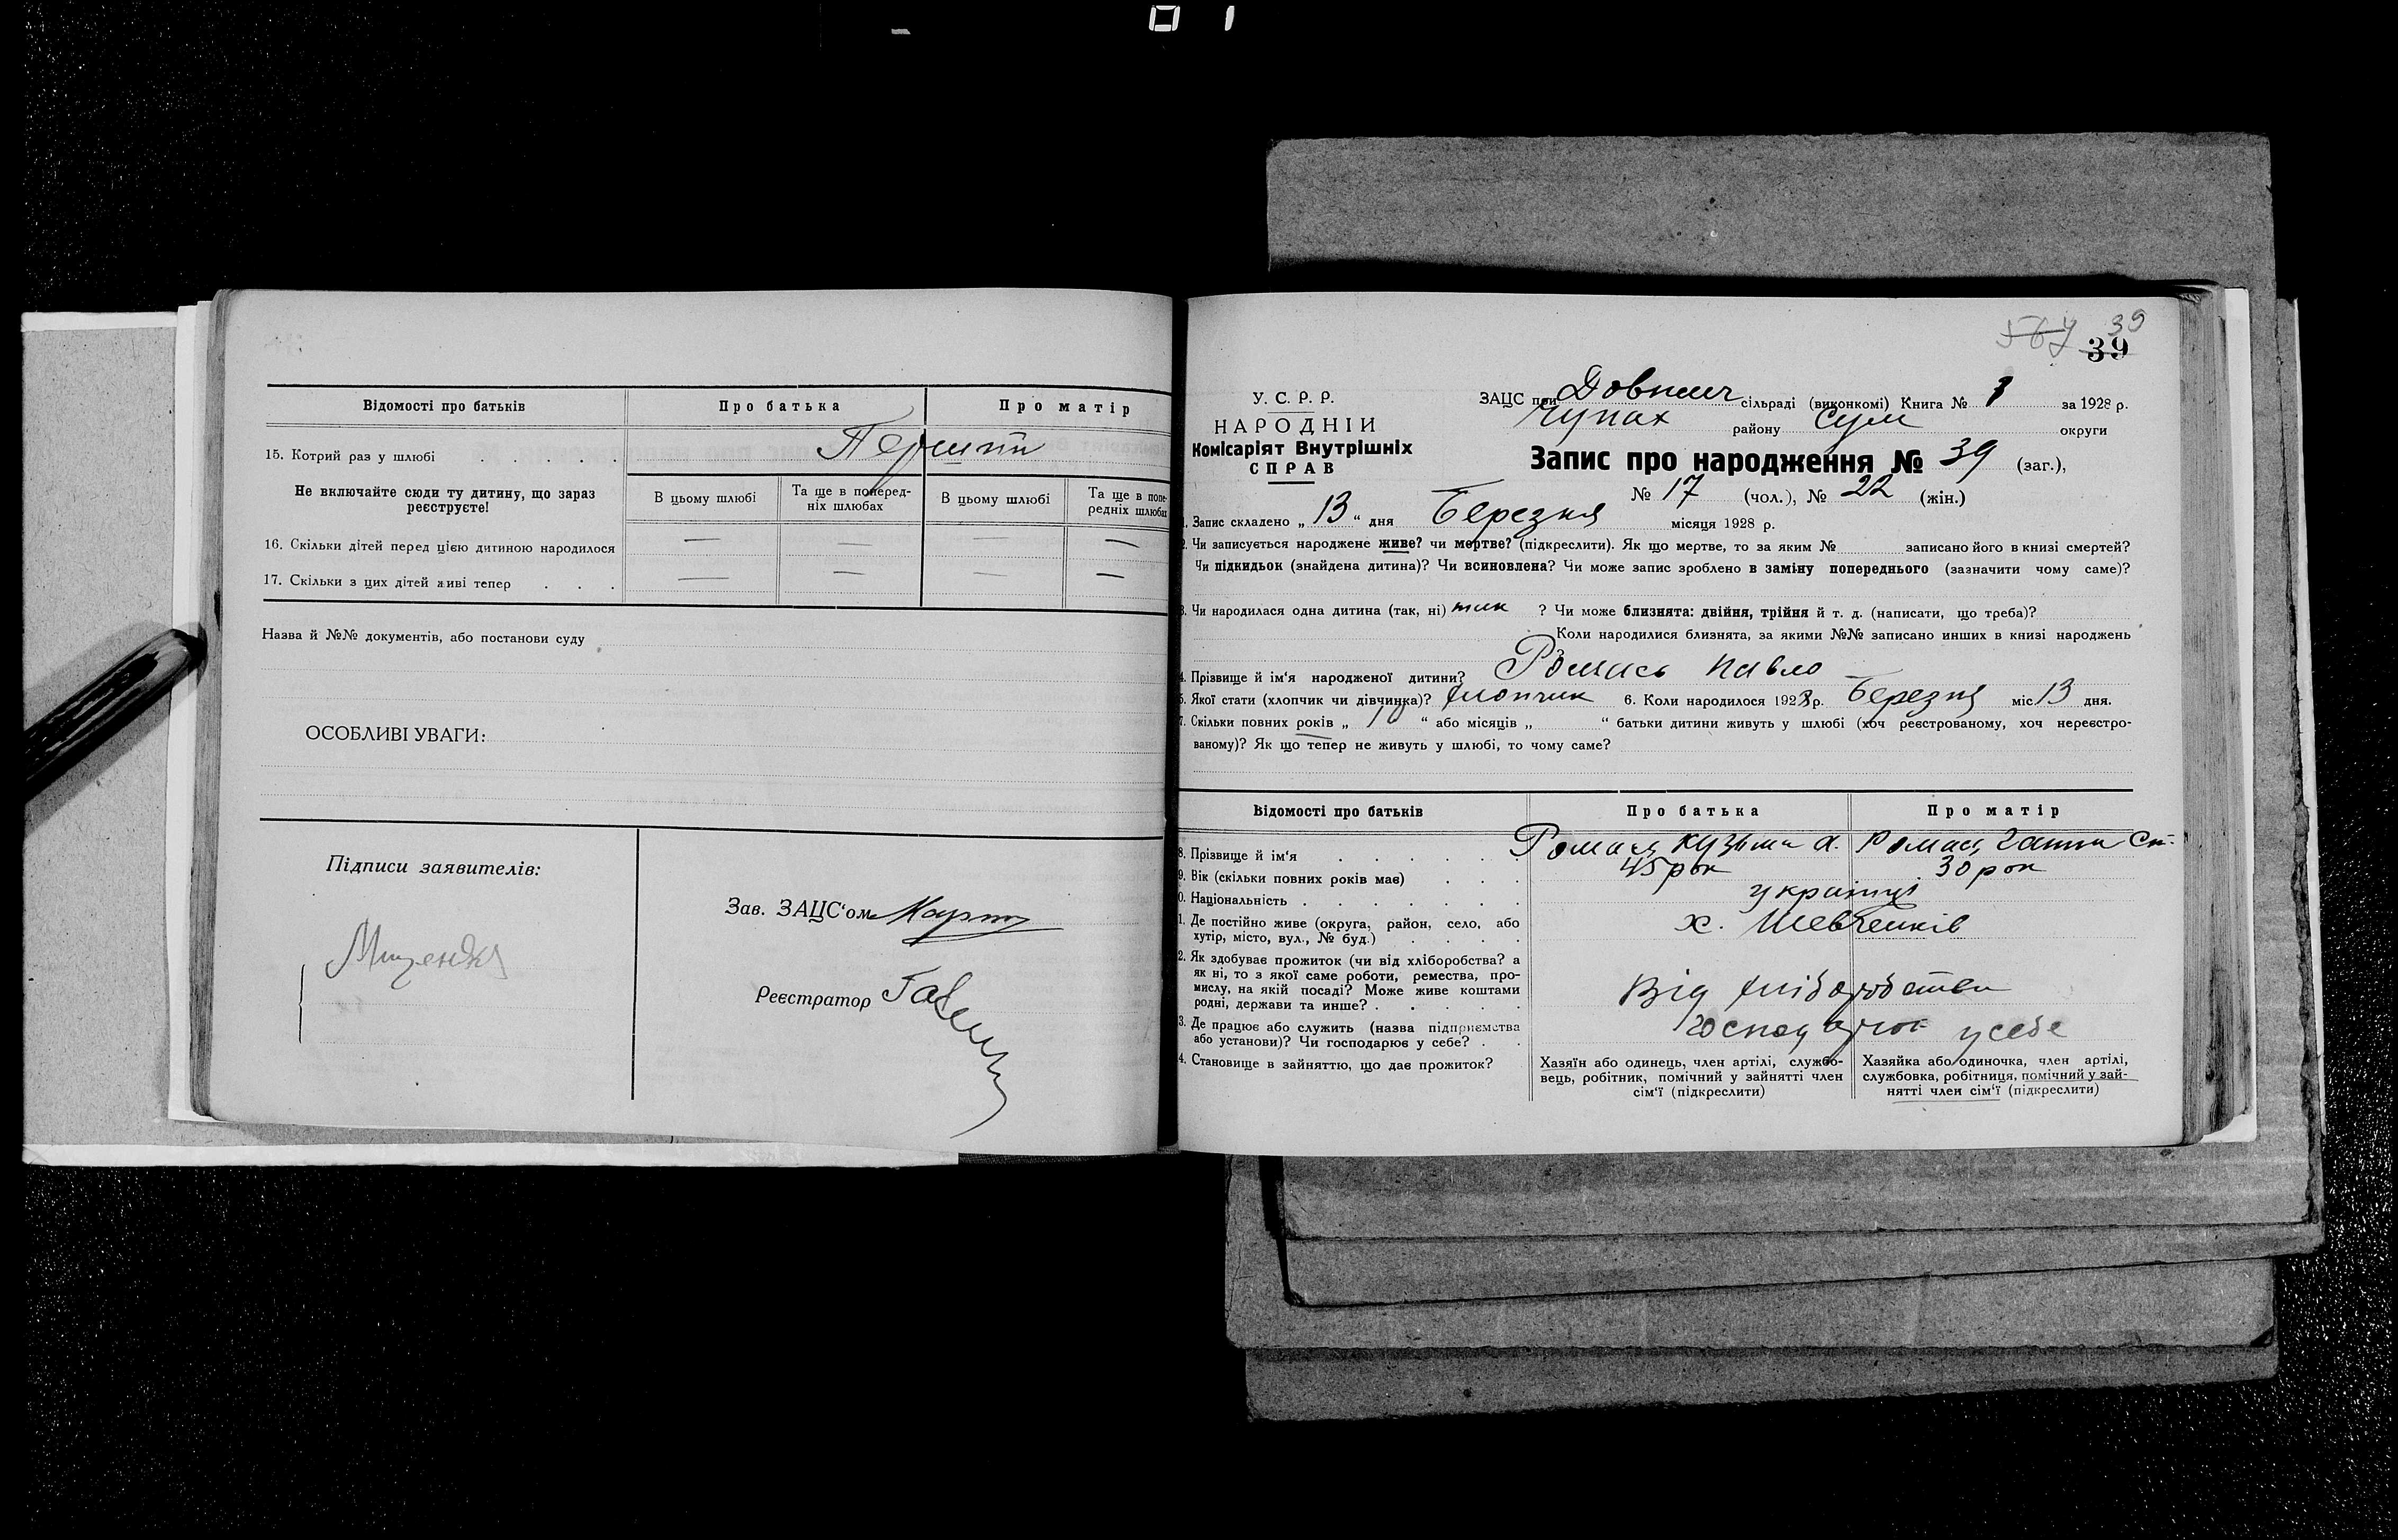 Відомості про батьків
Про батька
Про матір
15. Котрий раз у шлюбі
Не включайте сюди ту дитину, що зараз
реєструєте!
В цьому шлюбі
Та ще в поперед-
ніх шлюбах
В цьому шлюбі
Та ще в попе-
редніх шлюбах
16. Скільки дітей перед цією дитиною народилося — — — —
17. Скільки з цих дітей живі тепер — — — —
Назва й №№ документів, або постанови суду
ОСОБЛИВІ УВАГИ:
Підписи заявителів:
Зав. ЗАЦС‘ом
Реєстратор
567 39
39
У. С. Р. Р.
НАРОДНІЙ
Комісаріят Внутрішніх
СПРАВ
ЗАЦС при сільраді (виконкомі) Книга № 1 за 1928 р.
Чупах району Сум округи
Запис про народження № 39 (заг.),
№ 17 (чол.), № 22 (жін.)
1. Запис складено „ 13 “ дня Березня місяця 1928 р.
2. Чи записується народжене живе? чи мертве? (підкреслити). Як що мертве, то за яким № записано його в книзі смертей?
Чи підкидьок (знайдена дитина)? Чи всиновлена? Чи може запис зроблено в заміну попереднього (зазначити чому саме)?
3. Чи народилася одна дитина (так, ні) так ? Чи може близнята: двійня, трійня й т. д. (написати, що треба)?
Коли народилися близнята, за якими №№ записано инших в книзі народжень
4. Прізвище й ім‘я народженої дитини? Ромась Павло
5. Якої стати (хлопчик чи дівчинка)? хлопчик 6. Коли народилося 1928 р. Березня міс 13 дня.
7. Скільки повних років „ 10 “ або місяців „ “ батьки дитини живуть у шлюбі (хоч реєстрованому, хоч нереєстро-
ваному)? Як що тепер не живуть у шлюбі, то чому саме?
Відомості про батьків
Про батька
Про матір
8. Прізвище й ім‘я Ромась Кузьма А. Ромась Ганна Ст.
9. Вік (скільки повних років має) 45 рок 30 рок
10. Національність українці
11. Де постійно живе (округа, район, село, або
хутір, місто, вул., № буд.) х. Шевченків
12. Як здобуває прожиток (чи від хліборобства? а
як ні, то з якої саме роботи, ремества, про-
мислу, на якій посаді? Може живе коштами
родні, держави та инше?
Від хліборобства
13. Де працює або служить (назва підприємства
або установи)? Чи господарює у себе?
господарює у себе
14. Становище в зайняттю, що дає прожиток?
Хазяїн або одинець, член артілі, службо-
вець, робітник, помічний у зайнятті член
сім‘ї (підкреслити)
Хазяйка або одиночка, член артілі,
службовка, робітниця, помічний у зай-
нятті член сім‘ї (підкреслити)